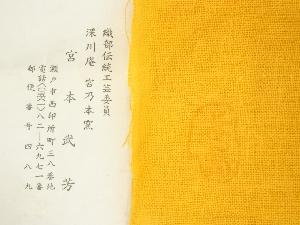 織部伝統工芸委員
深川庵 宮乃本窯
宮本武芳
瀬戸市西印所町三八番地
電話(〇五六一)八二―六九七一番
郵便番号四八九